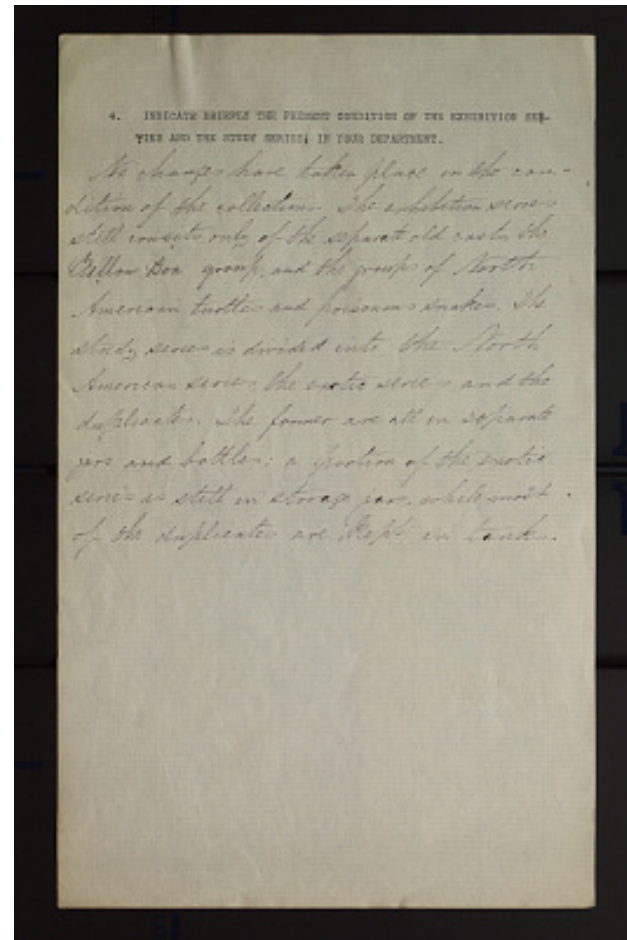 4. INDICATE BRIEFLY THE PRESENT CONDITION OF THE EXHIBITION SER-
IES AND THE STUDY SERIES, IN YOUR DEPARTMENT.
No changes have taken place in the con-
dition of the collections. The exhibition series
still consists only of the separate old casts, the
Yellow Boa group, and the groups of North
American turtles and poisonous snakes. The
study series is divided into the North
American series the exotic series and the
duplicates. The former are all in separate
jars and bottles; a portion of the exotic
series is still in storage jars, while most
of the duplicates are kept in tanks.